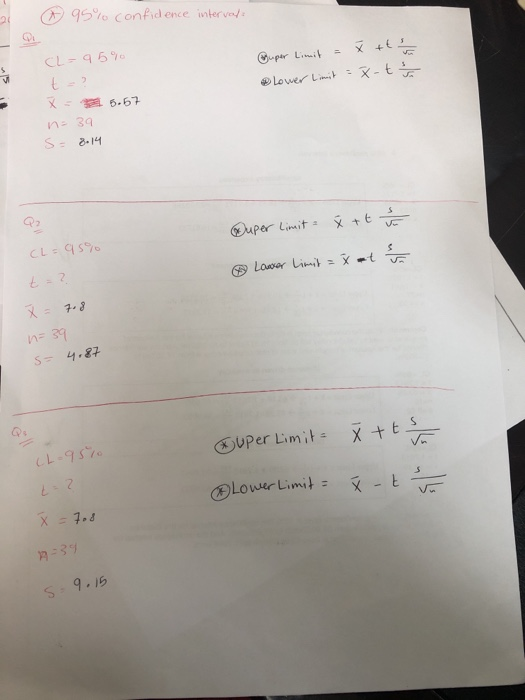 * 95% confidence intervals
Q1
CL = 95%
t = ?
x̄ = 5.67
n = 39
S = 8.14
* uper Limit = x̄ + t s/√n
* Lower Limit = x̄ - t s/√n
Q2
CL = 95%
t = ?
x̄ = 7.8
n = 39
S = 4.87
* uper Limit = x̄ + t s/√n
* Lower Limit = x̄ - t s/√n
CL = 95%
t = ?
x̄ = 7.8
n = 39
S = 9.15
* uper Limit = x̄ + t s/√n
* Lower Limit = x̄ - t s/√n